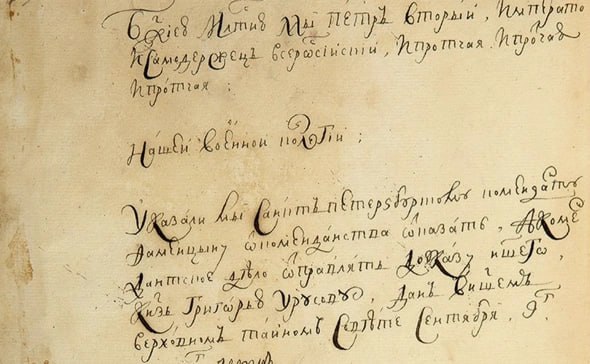 Бжиею Млтию Мы Петръ вторый, Императо
и самодержецъ всеросiйскiй, и протчая и протчая
и протчая :
Нашей военной колегiи :
Указали мы Санктъ петерзбургскому коменданту
Фаминцыну ѿ коменданства ѿказать, а коме
дантское дѣло ѿправлять до указу нашего,
Кнзь Григорью Урусову, данъ в нашемъ
верховномъ тайномъ Совѣте Сентября, 9г